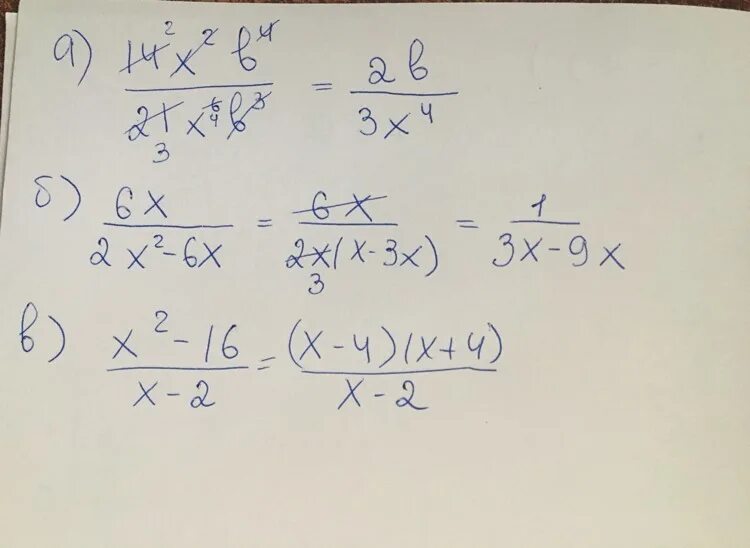 а) 14² x² b⁴ / 21 x⁶ b³ = 2b / 3x⁴
3 4
б) 6x / 2x²-6x = 6x / 2x(x-3x) = 1 / 3x-9x
3
в) x²-16 / x-2 = (x-4)(x+4) / x-2